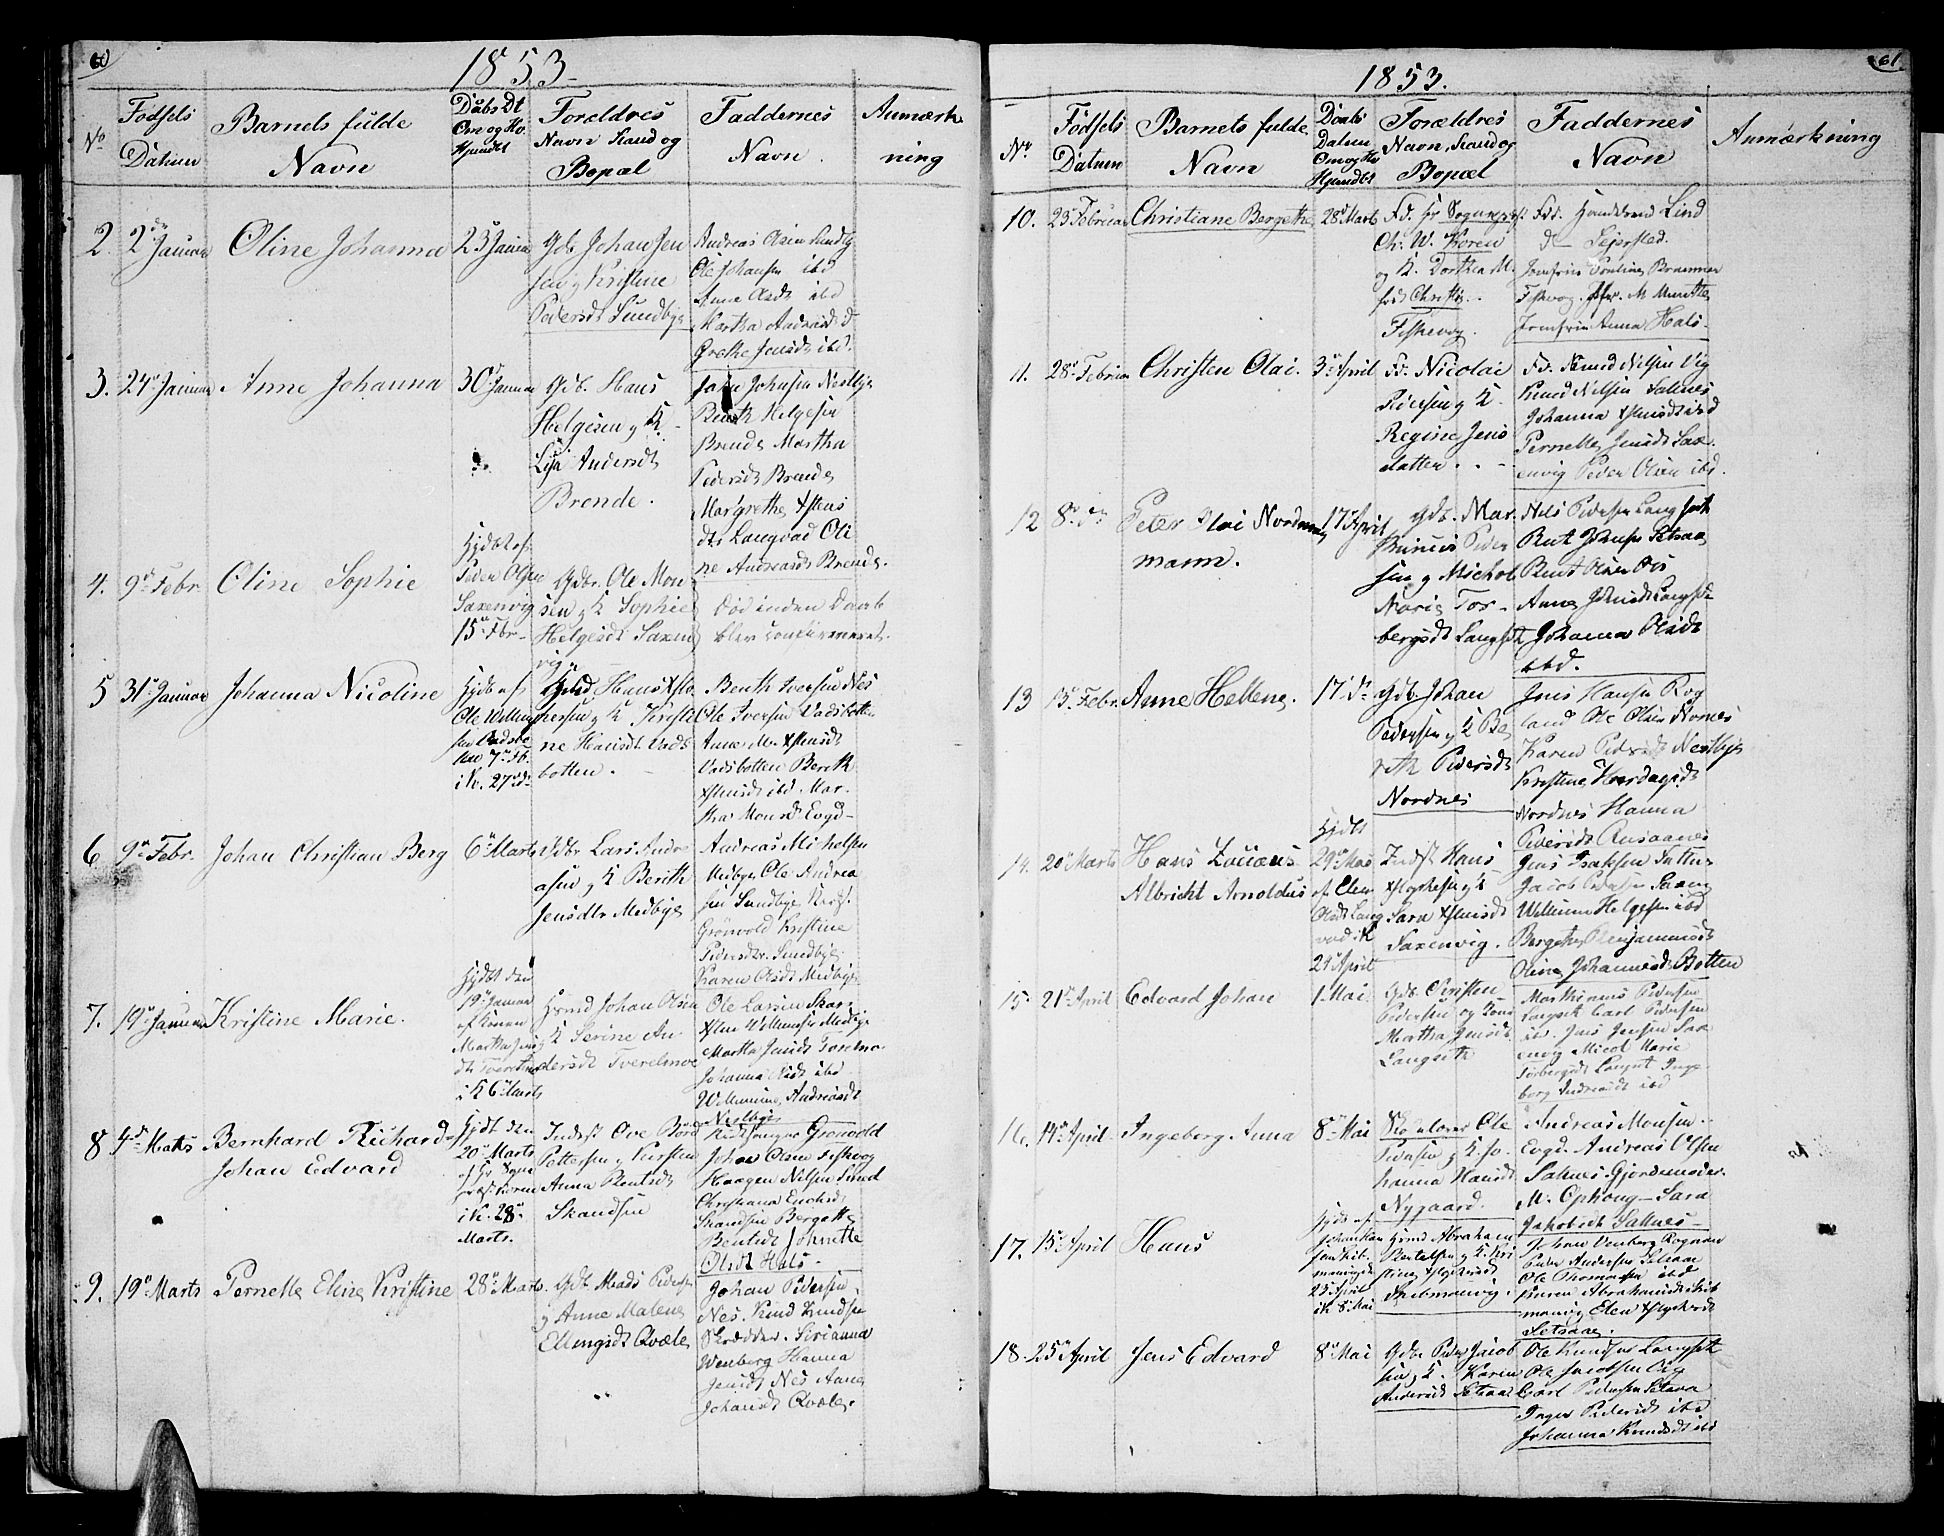 60
1853
No
Fødsels Datum
Barnets fulde Navn
Daabs Dt
Om og Ho
Hjemdbt
Forældres
Navn Stand og
Bopæl
Faddernes
Navn
Anmærk
ning
2. 2den Januar Oline Johanna 23 Januar
Gdb. Johan Jen
sen og Kristine
Pedersdt Sundbye
Andreas Olsen Sundby
Ole Johansen ibd
Anna Olsdt ibd
Martha Andreasdt
Grethe Jensdt ibd.
3. 24de Januar Anne Johanna 30te Januar
Gdb. Hans
Helgesen og K.
Lisa Andersdt
Brende.
John Johnsen Nestbye
Benth Helgesen
Brende Martha
Pedersdt Brende
Margrethe
Langvad Oli
ne Andreasdt Brende.
4. 9de Febr. Oline Sophie
Hjdbt af
Peder Olsen
Saxenvig
15de Fbr.
Gdbr. Ole Mon
sen og K Sophie
Helgesdt Saxen
vig.
Død inden Daab
blev confirmeret.
5 31te Januar Johanna Nicoline
Hjdb af
Ole Willum
sen Vadsbo
ten 7de Fb.
i K. 27de
Hans
og K Kristi
ne Hansdt Vads
botten.
Benth Iversen Nes
Ole Iversen Vadsbotten
Anne M.
Vadsbotten Berith
ibd. Mar
tha Monsdt Evgd
6. 9de Febr. Johan Christian Berg 6te Marts
Gdbr Lars Andre
asen og K Berith
Jensdtr Medbye
Andreas Michelsen
Medbye Ole Andrea
sen Sundbye
Grönvold Kristine
Pedersdtr. Sundbye
Karen Olsdt Medbye
7. 19de Januar Kristine Marie.
Hjdbt den
19de Januar
af Konen
Martha Jens
dt
i K 6te Marts
Hsmd Johan Olsen
K Serine An
dersdt Tverelmoe
Ole Larsen
Willumsen Medbye
Martha Jensdt
Johanna Olsdt ibd
Willumine Andreasdt
Nestbye
8 4de Marts Bernhard Richard
Johan Edvard
Hjdt den
20de Marts
af Hr Sogne
præst Koren
i K. 28de
Marts.
Indst Ove Bord
Pettersen og Kirsten
Anna Bentsdt
Skandsen
Kirkesanger Grönvold
Johan Olsen Fiskvog
Haagen Nilsen Sund
Christiana
Skandsen Bergette
Bentsdt Johnette
Olsdt Hals
9. 19de Marts Pernelle Eline Kristine 28de Marts
Gdb. Mads Pedersen
og Anne Malene
Ellingsdt Qvæle
Johan Pedersen
Nes. Knud Knudsen
Skrædder. Serianna
Wenberg Hanna
Jensdt Nes Anne
Johansdt Qvæle.
61
1853.
No.
Fødsels
Datum
Barnets fulde
Navn
Daabs
Datum
Om og Ho
Hjemdbt
Forældres
Navn, Stand og
Bopæl
Faddernes
Navn
Anmærkning
10. 23de Februar Christiane Bergethe 28de Marts
Fd. Hr Sognepræst
Ch. W. Koren
og K. Dorthea M.
født Christie.
Fiskevog.
Fdd. Handelsmd Lind
do Sejersted.
Jomfrue Pauline Brænmer
Fiskevog. Jfr. M. Munthe
Jomfrue Anna Hals
11. 28de Februar Christen Olai. 3de April
Fd. Nicolai
Pedersen og K.
Regine Jens
datter.
Fd. Knud Nilsen Vig
Knud Nilsen Saltnes
Johanna ibd
Pernelle Jensdt Sax
envig Peder Olsen ibd.
12 8de do Peter Olai Nordmann
mann.
17de April
Gdb. Mar
thinus Peder
sen og Michel
Marie Tor
bergsdt Langseth
Nils Pedersen Langseth
Bent Johnsen Setsaae
Bent Olsen
Anne Johnsdt Langset
Johanna Olsdt
ibd.
13 13de Febr. Anne Hellene. 17de do
Gdb. Johan
Pedersen og K Be
reth Pedersdt
Nordnes
Jens Hansen Rog
land Ole Olsen Nornes
Karen Pedersdt Nestbye
Kristine
Nordnes Hanna
Pedersdt Rusaanes
14. 20de Marts Hans
Albricht Arnoldus
Hjdbt
29de
af Elen
Olsdt Lang
vad i K
21de April
Indst Hans
og K
Sara
Saxenvig.
Jens Isaksen
Jacob Pedersen Saxen
Willum Helgesen ibd
Bergethe Benjaminsdt
Oline Johannesdt Botten
15. 21de April Edvard Johan 1. Mai
Gdb. Christen
Pedersen og Kone
Martha Jensdt
Langseth
Marthinus Pedersen
Langseth Carl Pedersen
ib. Jens Jensen Sax
envig Micol Marie
Torbergsdt Langset Inge
borg Andreasdt ibd
16. 14de April Ingeborg Anna 8de Mai
Skolelærer Ole
Pedersen og K. Jo
hanna Hansdt
Nygaard.
Andreas Monsen
Evgd. Andreas Olsen
Saltnes. Gjordemoder
M. Ophoug Sara
Jakobsdt Saltnes
17. 15de April Hans
Hjdb af
Johan Han
sen Skib
manvig
25 April
i K 8 Mai
Hsmd Abraham
Bentelsen og K. Kri
stine
Skibmanvig.
Johan Wenberg Rognan
Peder Andersen Setsaae
Ole Thomassen ibd
Karen Abrahamsdt Skib
manvig Elen
Setsaae.
18. 25de April Jens Edvard 8de Mai
Gdbr Peder Jacob
sen og K. Karen
Andersdt Setsaae
Ole Knudsen Langseth
Ole Jacobsen
Carl Pedersen Setsaa
Inger Pedersdt ibd
Johanna Knudsdt ibd